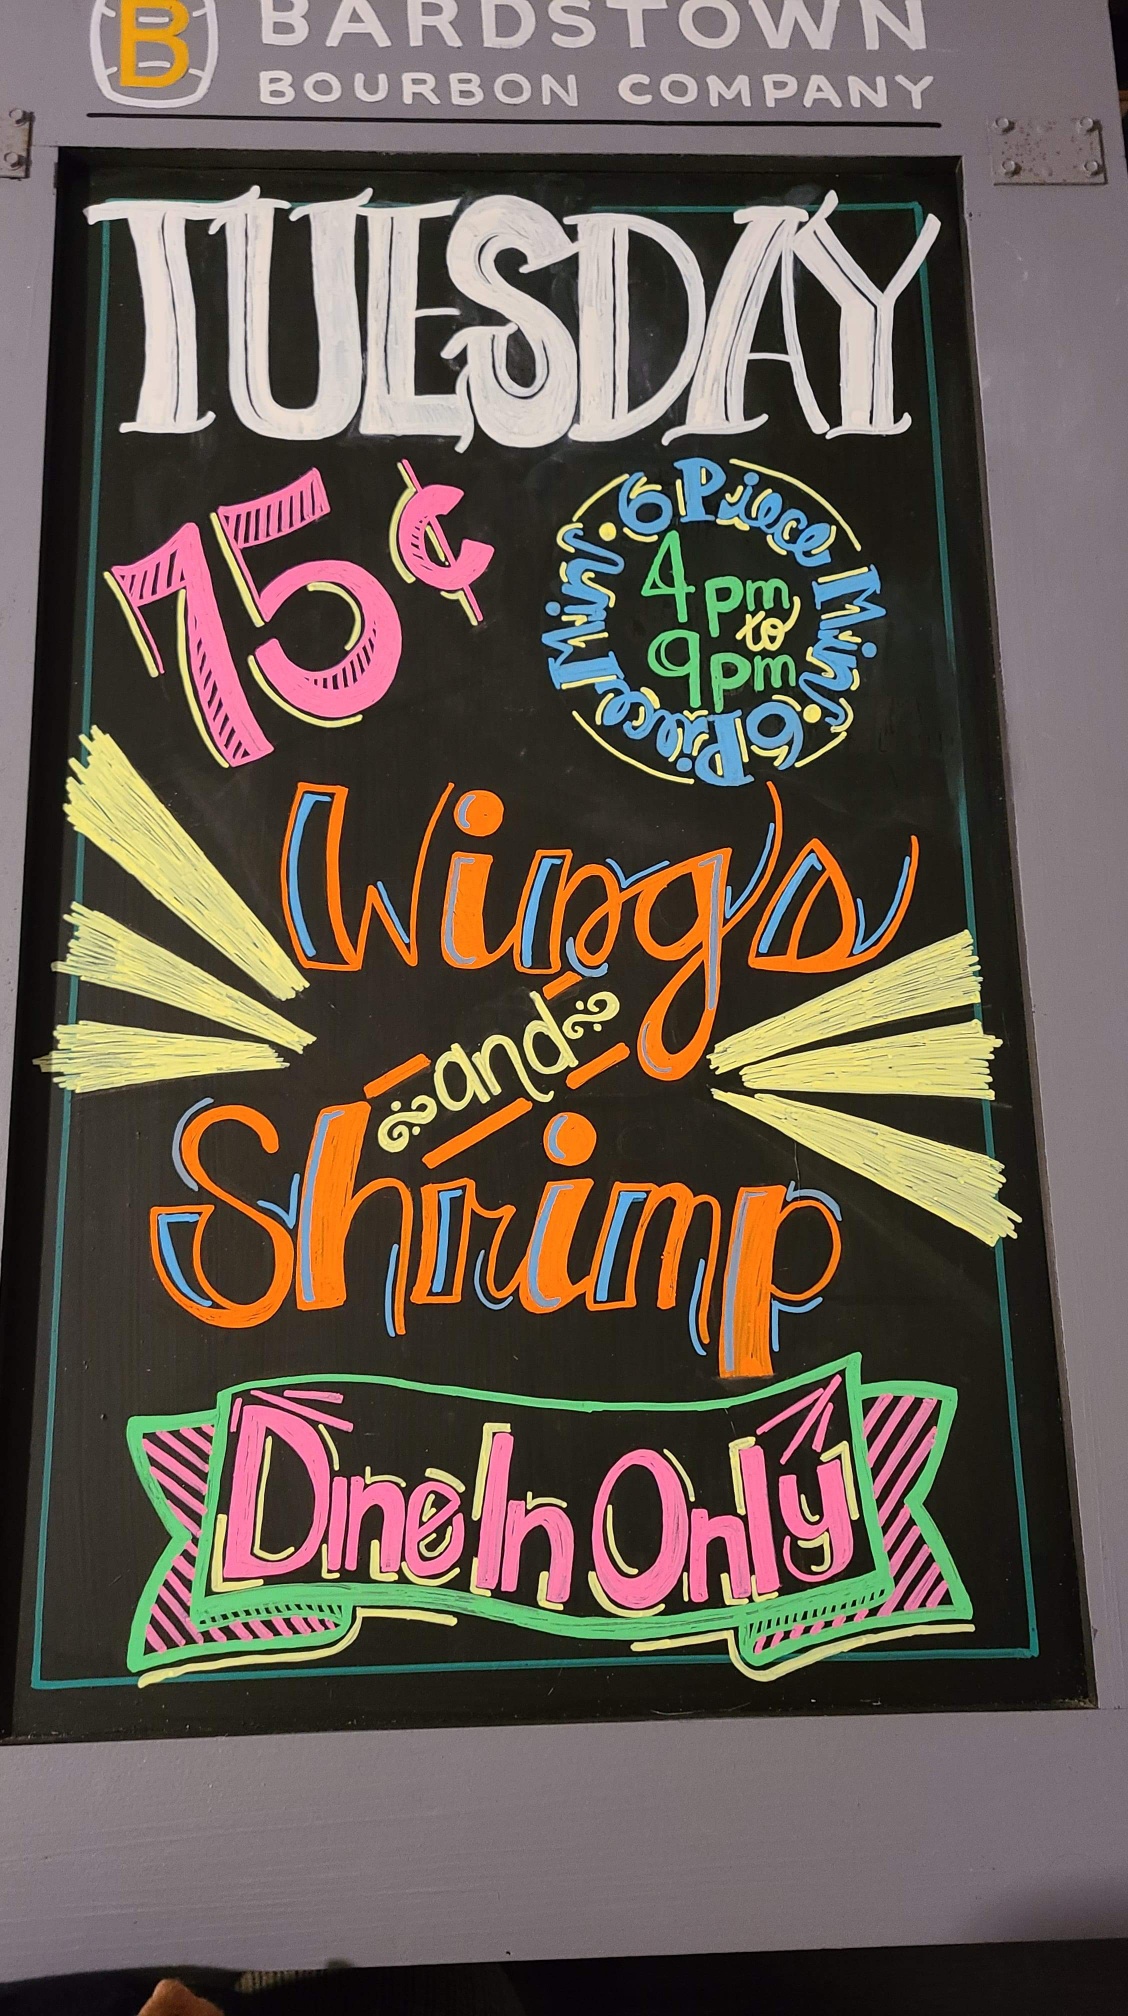 B BARDSTOWN
BOURBON COMPANY
TUESDAY
75¢
6 Piece Min.
6 Piece Min.
4pm
to
9pm
Wings
and
Shrimp
Dine In Only